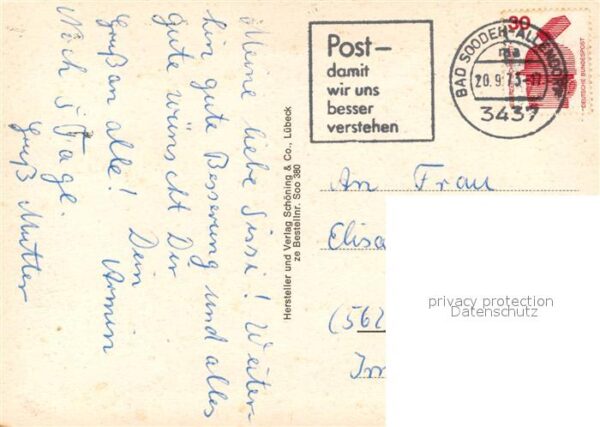 Meine liebe Sissi! Weiter-
hin gute Besserung und alles
gute wünscht Dir
Dein
Armin
Gruß an alle!
Noch 5 Tage.
Gruß Mutter
Hersteller und Verlag Schöning & Co., Lübeck
ze Bestellnr. Soo 380
Post –
damit
wir uns
besser
verstehen
BAD SOODEN-ALLENDORF
20.9.75-17
3437
30
DEUTSCHE BUNDESPOST
An Frau
Elisa
(562
privacy protection
Datenschutz